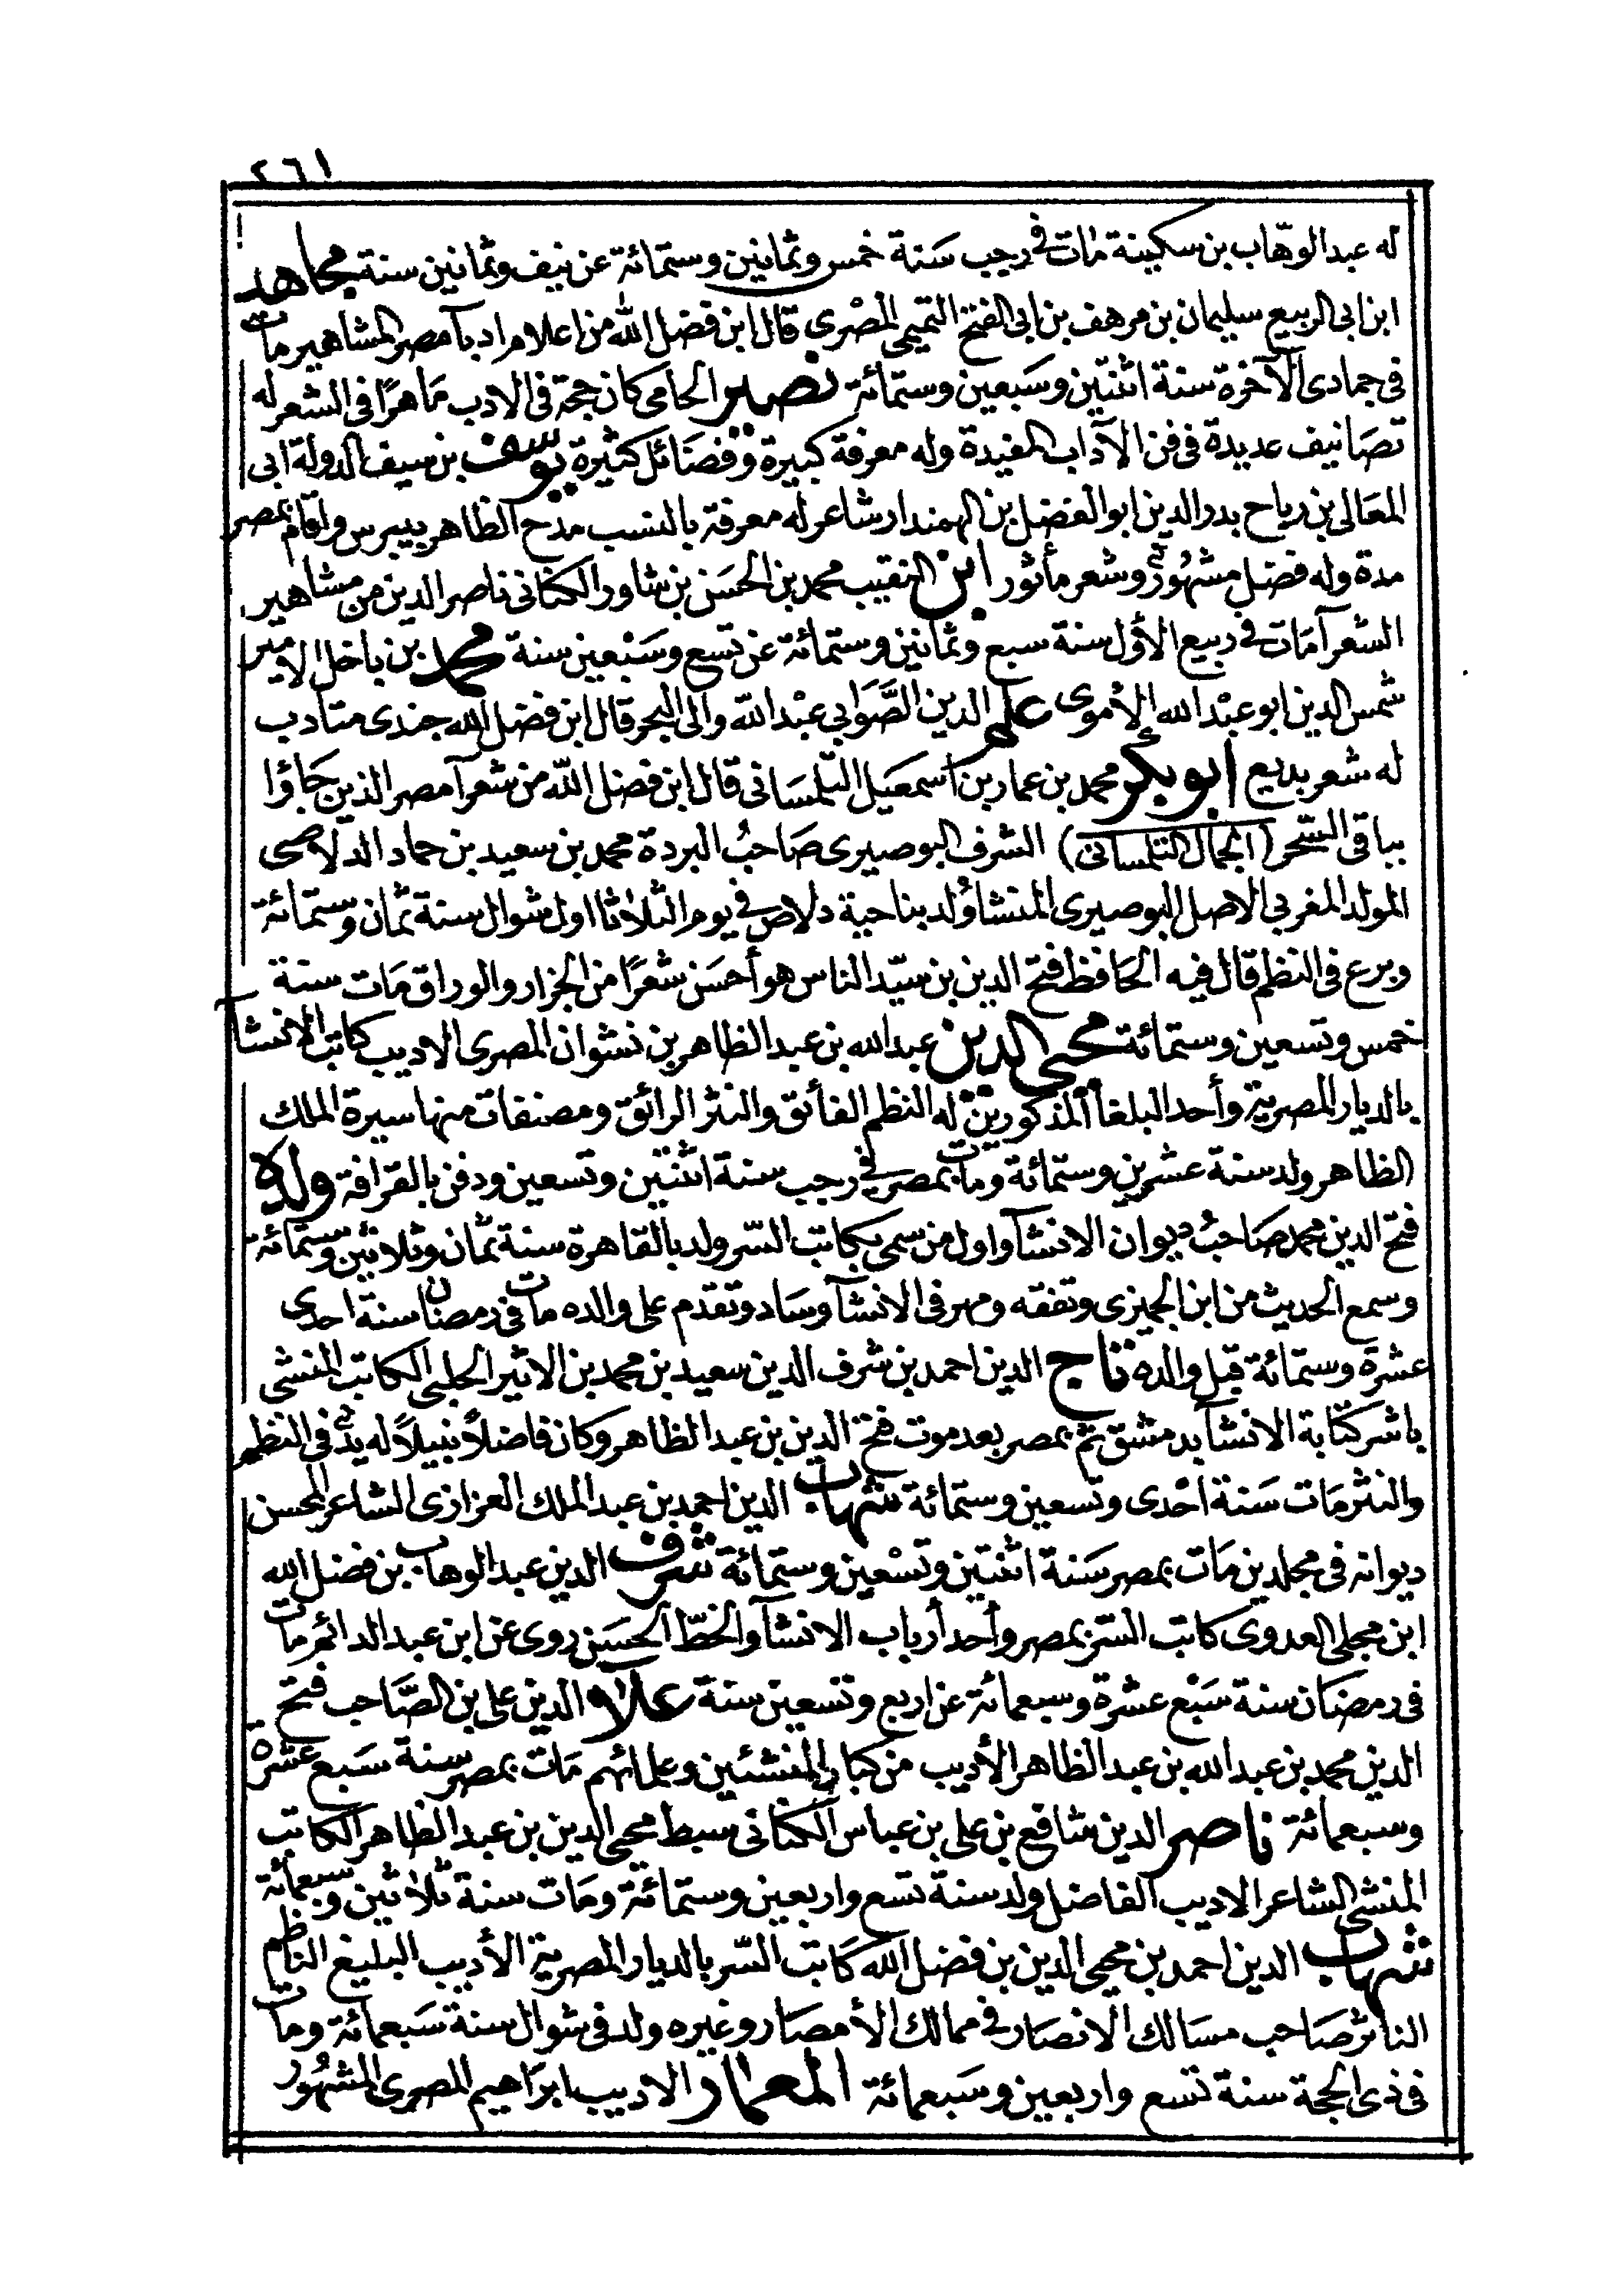 ٢٦١
له عبد الوهّاب بن سكينة مات في رجب سَنة خمس وثمانين وستمائة عن نيف وثمانين سنة مجاهد
ابن ابى الربيع سليمان بن مرهف بن ابى الفتح التميمى المصْرى قال ابن فضل الله من اعلام ادبآ مصر المشاهير مات
فى جمادى الآخرة سنة اثنتين وسَبعين وستمائة نصير الحامى كان حجة فى الادب مَاهرًا فى الشعر له
تصَانيف عديدة فى فن الآداب المفيدة وله معرفة كبيرة وفضَائل كثيرة يوسف بن سيف الدولة ابى
المعَالى بن رياح بدر الدين ابو الفضل بن المهمندار شاعر له معرفة بالنسب مدح الظاهر بيبرس واقام بمصر
مدة وله فضل مشهُورٌ وشعر مأثور ابن النقيب محمد بن الحسَن بن شاور الكنانى ناصر الدين من مشاهير
الشعرآ مَات في ربيع الأول سنة سبع وثمانين وستمائة عن تسع وسَبْعين سنة محمد بن باخل الامير
شمس الدين ابو عبْد الله الأموى علم الدين الصَّوَابي عبْد الله والى البحر قال ابن فضل الله جندى متأدب
له شعر بديع أبو بكر محمد بن عمار بن اسمعيل التلمسَانى قال ابن فضل الله من شعرآ مصر الذين جَاؤا
بباقى السّحر (الجمال التلمسانى) الشرف البوصيرى صَاحبُ البردة محمد بن سعيد بن حماد الدلاصى
المولد المغربى الاصل البوصيرى المنشأ وُلد بناحية دلاص في يوم الثلاثا اول شوال سنة ثمان وستمائة
وبرع فى النظم قال فيه الحَافظ فتح الدين بن سيّد الناس هو أحسَن شعْرًا من الجزار والوراق مَات سنة
خمس وتسعين وستمائة محيى الدين عبد الله بن عبد الظاهر بن نشوان المصرى الاديب كاتب الانشآ
بالديار المصرية وأحد البلغآ المذكورين له النظم الفائق والنثر الرائق ومصنفات منها سيرة الملك
الظاهر ولد سنة عشرين وستمائة ومات بمصر في رجب سنة اثنتين وتسعين ودفن بالقرافة ولده
فتح الدين محمد صَاحبُ ديوان الانشآ واول من سمى بكاتب السّر ولد بالقاهرة سنة ثمان وثلاثين وستمائة
وسمع الحديث من ابن الجميزى وتفقه ومهر فى الانشآ وسَاد وتقدم على والده مات فى رمضان سنة احدى
عشرة وستمائة قبل والده تاج الدين احمد بن شرف الدين سعيد بن محمد بن الاثير الحلبى الكاتب المنشى
باشر كتابة الانشآ بدمشق ثم بمصر بعد موت فتح الدين بن عبد الظاهر وكان فاضلاً نبيلاً له يدٌ فى النظم
والنثر مَات سَنة احْدى وتسعين وستمائة شهاب الدين احمد بن عبد الملك العزازى الشاعر المحسن
ديوانه فى مجلدين مَات بمصر سَنة اثنتين وتسْعين وستمائة شرف الدين عبد الوهاب بن فضل الله
ابن مجلى العدوى كاتب السّر بمصر وأحد أرباب الانشآ والخطّ الحسَن روى عن ابن عبد الدائم مات
فى رمضَان سنة سَبْع عشرة وسبعمائة عن اربع وتسعين سنة علاء الدين على بن الصَّاحب فتح
الدين محمد بن عبد الله بن عبد الظاهر الأديب من كبار المنشئين وعلمائهم مَات بمصر سنة سَبع عشرة
وسبعمائة ناصر الدين شافع بن على بن عباس الكنانى سبط محيى الدين بن عبد الظاهر الكاتب
المنشى الشاعر الاديب الفاضل ولد سنة تسع واربعين وستمائة ومَات سنة ثلاثين وسبعمائة
شهاب الدين احمد بن محيى الدين بن فضل الله كَاتب السّر بالديار المصرية الأديب البليغ الناظم
الناثر صَاحب مسَالك الانصَار فى ممالك الأمصَار وغيره ولد فى شوال سنة سَبعمائة ومات
فى ذى الحجة سنة تسع واربعين وسَبعمائة المعمار الاديب ابرَاهيم المصرى المشهُور